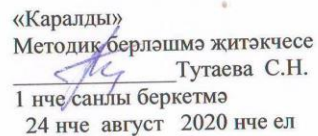 «Каралды»
Методик берләшмә җитәкчесе
______________Тутаева С.Н.
1 нче санлы беркетмә
24 нче август 2020 нче ел